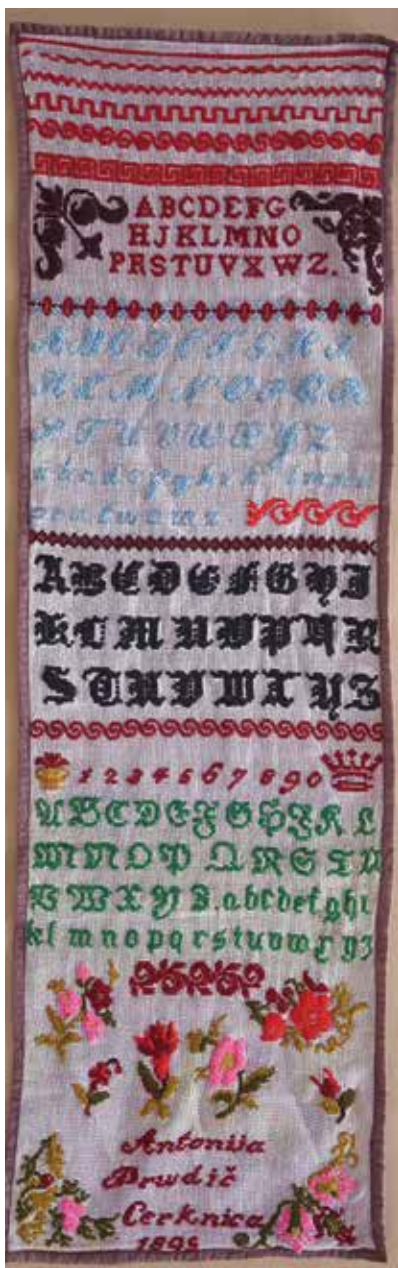 ABCDEFG
HJKLMNO
PRSTUVXWZ.
A B C D E F G H I
K L M N O P Q R
S T U V W X Y Z
A B C D E F G H I
K L M N O P Q R
S T U V W X Y Z
1 2 3 4 5 6 7 8 9 0
A B C D E F G H J K L
M N O P Q R S T U
V W X Y Z. a b c d e f g h i
k l m n o p q r s t u v w x y z
Antonija
Cerknica